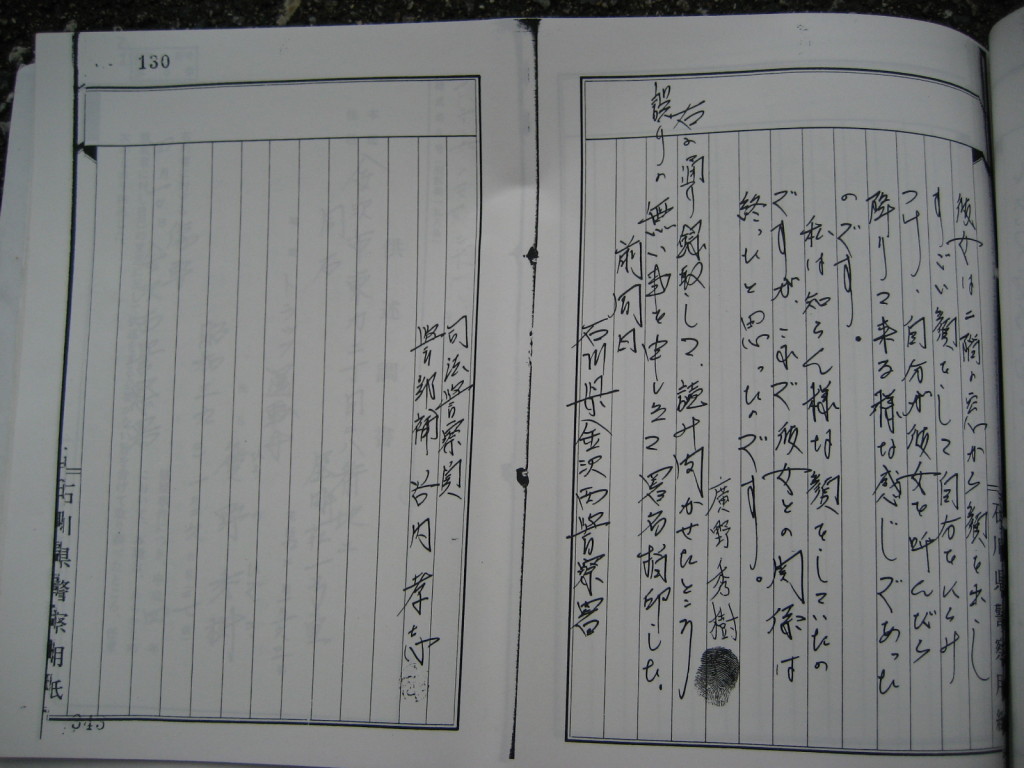 彼女は二階の窓から顔を出し
すごい顔をして自分をにらみ
つけ、自分が彼女を呼んだら
降りて来る様な感じであった
のです。
私は知らん様な顔をしていたの
ですが、これで彼女との関係は
終ったと思ったのです。
廣野秀樹
右の通り録取して、読み聞かせたところ
誤りの無い事を申し立て署名指印した。
前同日
石川県金沢西警察署
司法警察員
警部補 谷内孝志
130
石川県警察用紙
石川県警察用紙
343